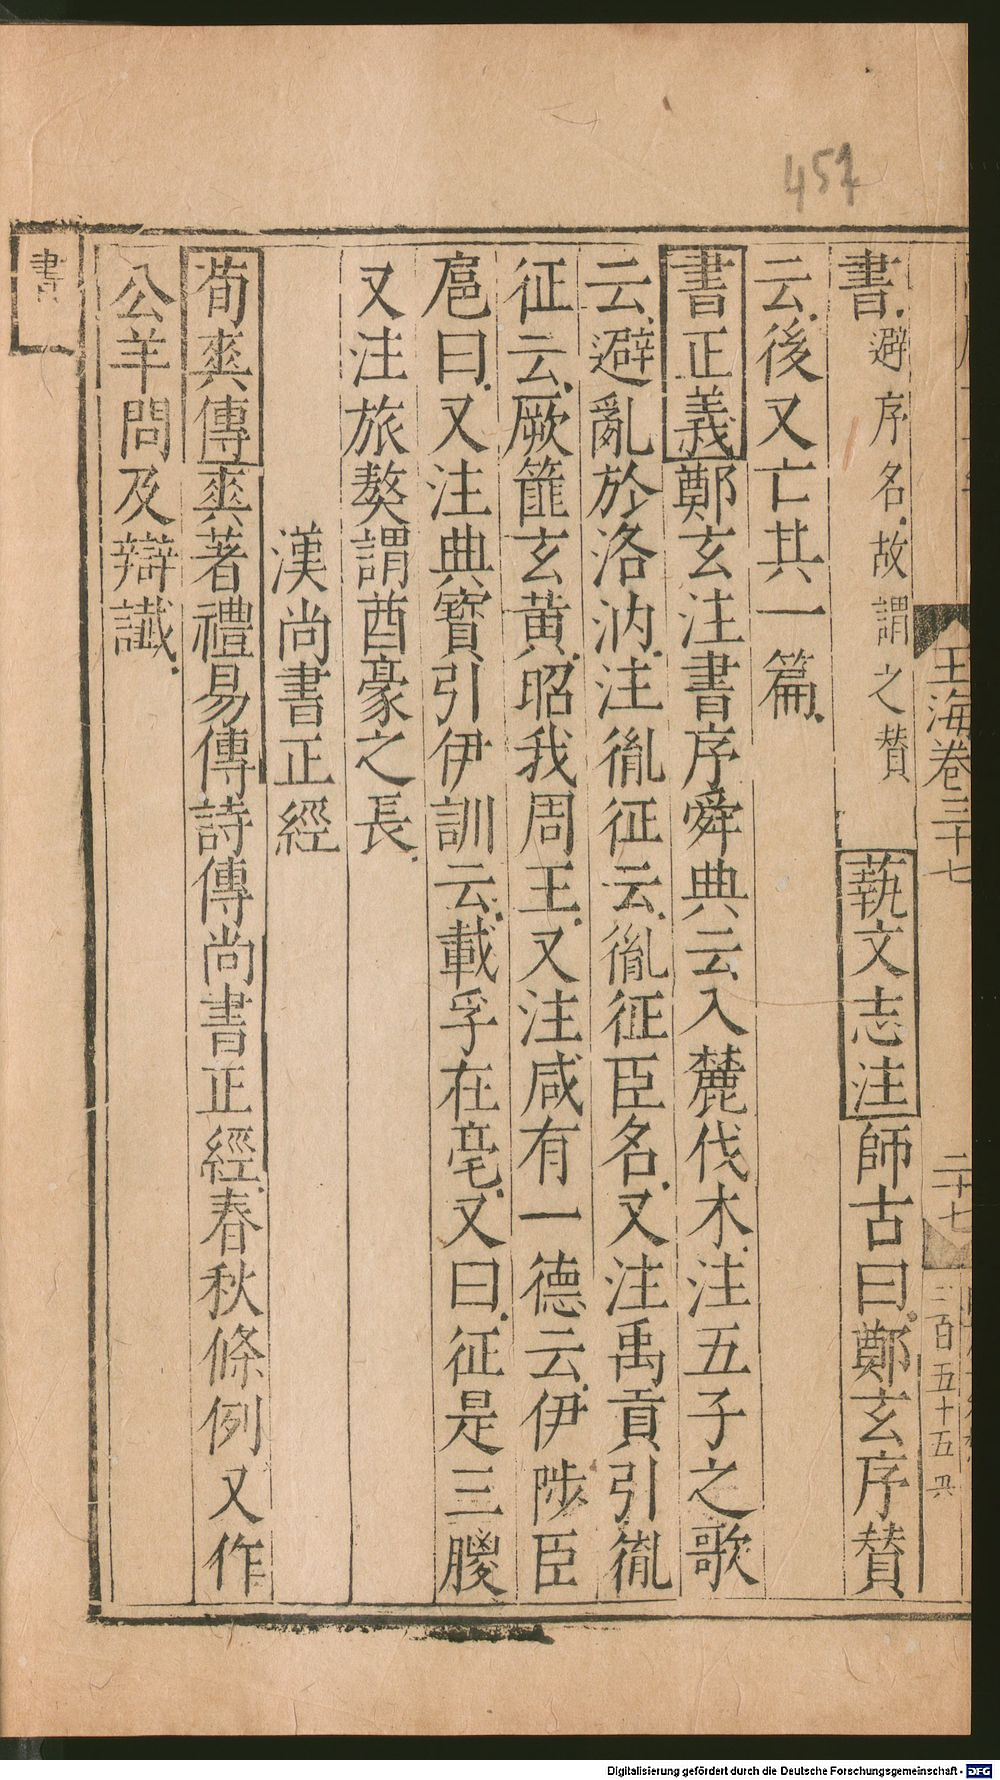 457
玉海卷三十七
二十七
三百五十五
書避序名故謂之贊 藝文志注師古曰鄭玄序贊
云後又亡其一篇
書正義鄭玄注書序舜典云入麓伐木注五子之歌
云避亂於洛汭注胤征云胤征臣名又注禹貢引胤
征云厥篚玄黃昭我周王又注咸有一德云伊陟臣
扈曰又注典寶引伊訓云載孚在亳又曰征是三朡
又注旅獒謂酋豪之長
漢尚書正經
荀爽傳爽著禮易傳詩傳尚書正經春秋條例又作
公羊問及辯讖
書
Digitalisierung gefördert durch die Deutsche Forschungsgemeinschaft - DFG